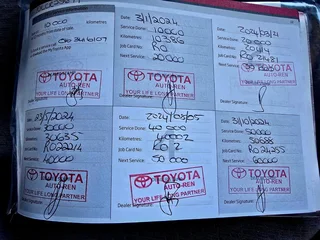 10 000
Kilometres:
MyToyota App
TOYOTA
AUTO-REN
YOUR LIFE LONG PARTNER
Date: 3/1/2024
Service Done: 10000
Kilometres: 10386
Job Card No: RO
Next Service: 20000
TOYOTA
AUTO-REN
YOUR LIFE LONG PARTNER
Dealer Signature:
Date:
Service Done: 20000
Kilometres:
Job Card No:
Next Service:
TOYOTA
AUTO-REN
YOUR LIFE LONG PARTNER
Dealer Signature:
30000
30635
RO22014
40000
TOYOTA
AUTO-REN
YOUR LIFE LONG PARTNER
Date: 2024/05/05
Service Done: 40 000
Kilometres: 40002
Job Card No: RO 2
Next Service: 50 000
TOYOTA
AUTO-REN
YOUR LIFE LONG PARTNER
Dealer Signature:
Date: 31/10/2024
Service Done: 50000
Kilometres: 50688
Job Card No: RO 24255
Next Service: 60000
TOYOTA
AUTO-REN
YOUR LIFE LONG PARTNER
Dealer Signature: